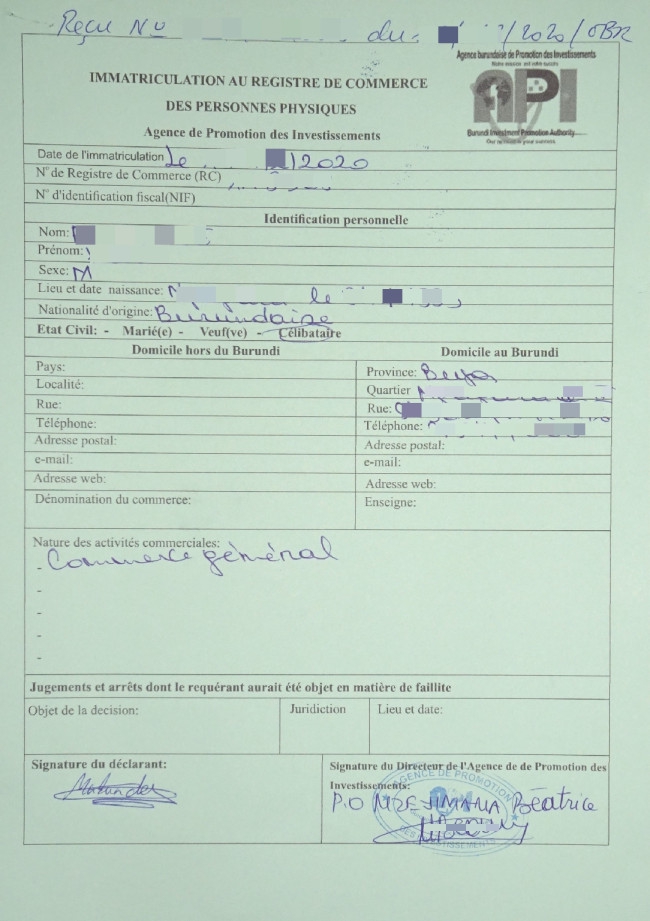 Reçu No du: /2020/OBR
Agence burundaise de Promotion des Investissements
API
Burundi Investment Promotion Authority
IMMATRICULATION AU REGISTRE DE COMMERCE
DES PERSONNES PHYSIQUES
Agence de Promotion des Investissements
Date de l'immatriculation Le /2020
N° de Registre de Commerce (RC)
N° d'identification fiscal(NIF)
Identification personnelle
Nom:
Prénom:
Sexe: M
Lieu et date naissance: le
Nationalité d'origine: Burundaise
Etat Civil: - Marié(e) - Veuf(ve) - Célibataire
Domicile hors du Burundi
Pays:
Localité:
Rue:
Téléphone:
Adresse postal:
e-mail:
Adresse web:
Dénomination du commerce:
Domicile au Burundi
Province:
Quartier
Rue:
Téléphone:
Adresse postal:
e-mail:
Adresse web:
Enseigne:
Nature des activités commerciales:
- Commerce général
-
-
-
-
Jugements et arrêts dont le requérant aurait été objet en matière de faillite
Objet de la decision:
Juridiction
Lieu et date:
Signature du déclarant:
Signature du Directeur de l'Agence de de Promotion des
Investissements:
P.O Béatrice
AGENCE DE PROMOTION
DES INVESTISSEMENTS